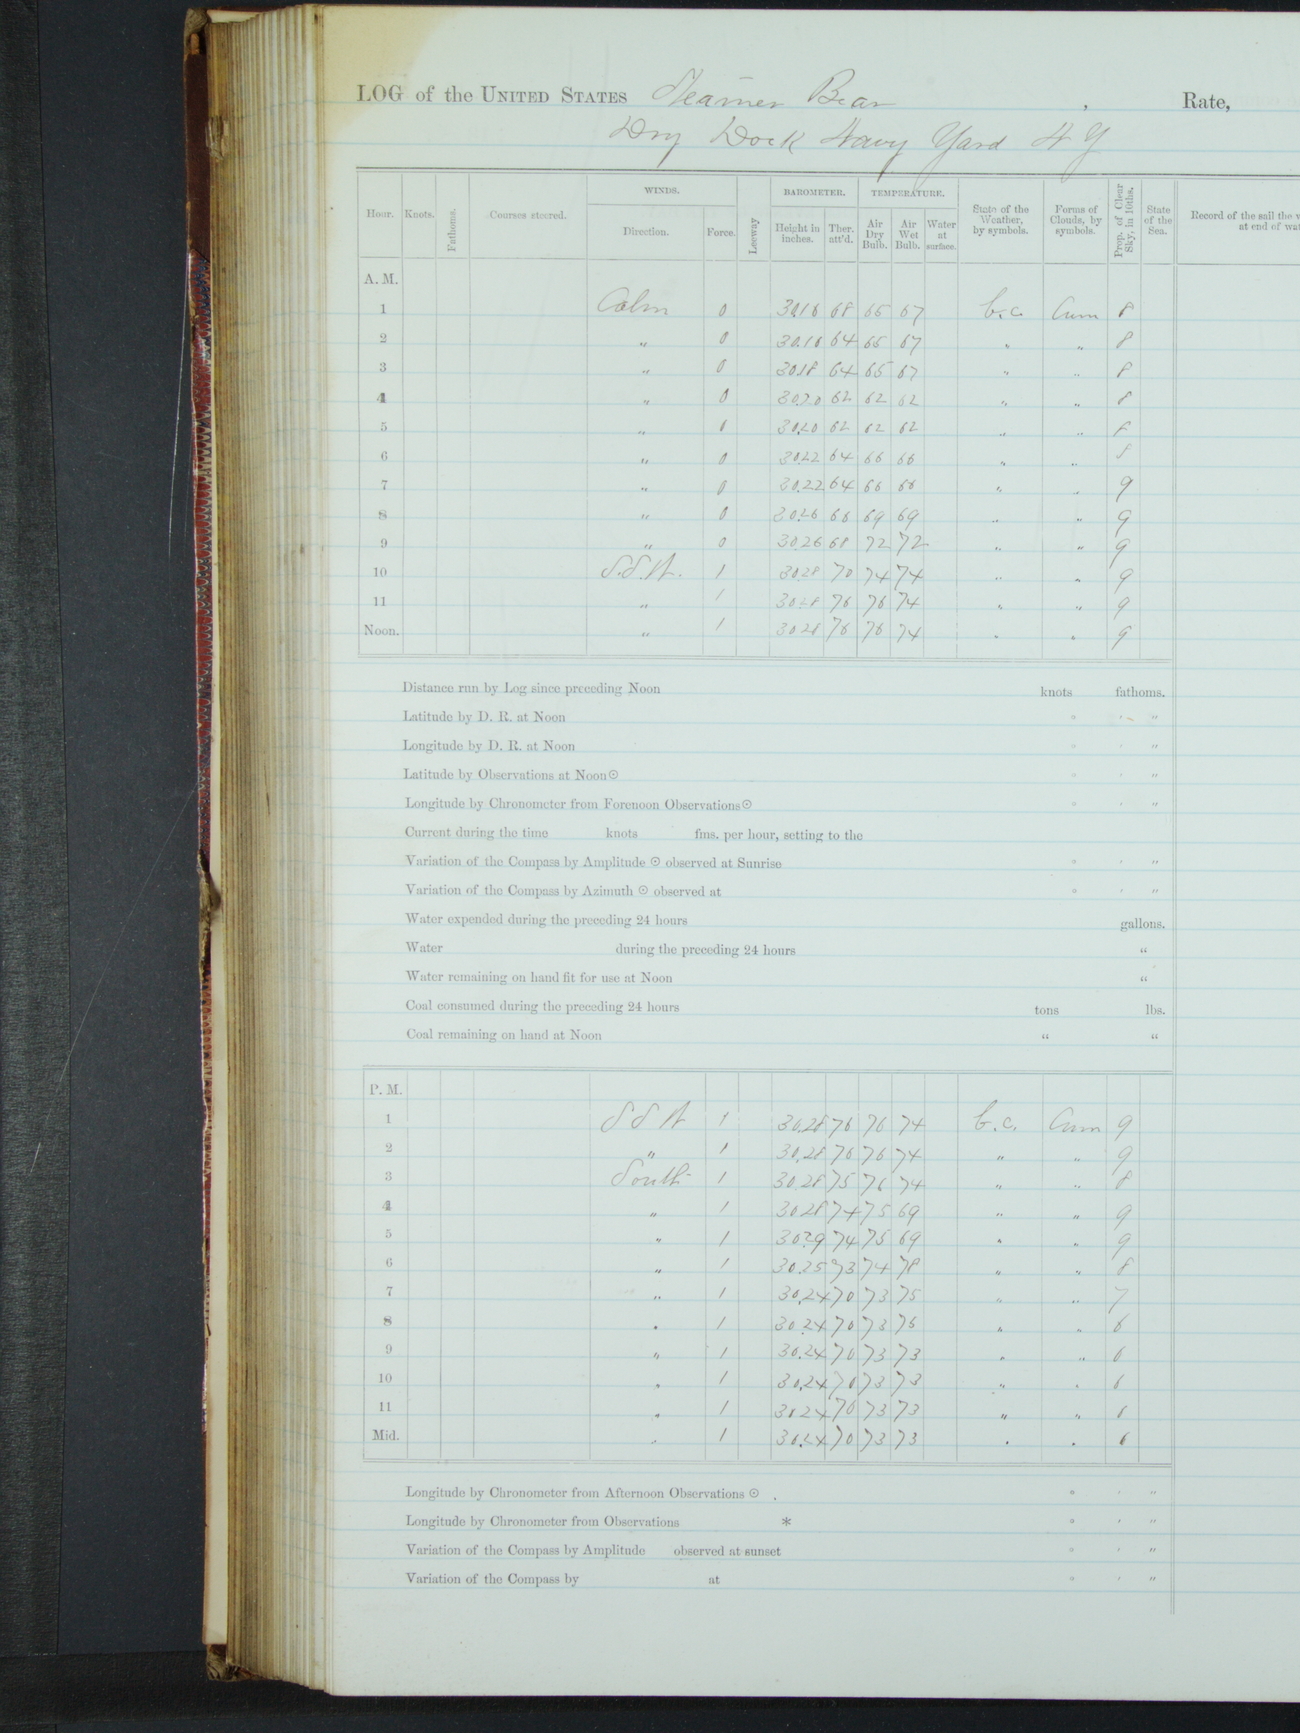 LOG of the UNITED STATES Steamer Bear , Rate,
Dry Dock Navy Yard N Y
Hour. Knots. Fathoms. Courses steered. WINDS. Direction. Force. Leeway BAROMETER. Height in inches. Ther. att'd. TEMPERATURE. Air Dry Bulb. Air Wet Bulb. Water at surface. State of the Weather, by symbols. Forms of Clouds, by symbols. Prop. of Clear Sky, in 10ths. State of the Sea. Record of the sail the at end of
A. M.
1 Calm 0 30.16 68 66 67 b.c. Cum 8
2 " 0 30.16 64 66 67 " " 8
3 " 0 30.18 64 65 67 " " 8
4 " 0 30.20 62 62 62 " " 8
5 " 0 30.20 62 62 62 " " 8
6 " 0 30.22 64 66 66 " " 8
7 " 0 30.22 64 66 66 " " 9
8 " 0 30.26 66 69 69 " " 9
9 " 0 30.26 68 72 72 " " 9
10 S.S.W. 1 30.28 70 74 74 " " 9
11 " 1 30.28 76 76 74 " " 9
Noon. " 1 30.28 76 76 74 " " 9
Distance run by Log since preceding Noon knots fathoms.
Latitude by D. R. at Noon ° ' "
Longitude by D. R. at Noon ° ' "
Latitude by Observations at Noon ☉ ° ' "
Longitude by Chronometer from Forenoon Observations ☉ ° ' "
Current during the time knots fms. per hour, setting to the
Variation of the Compass by Amplitude ☉ observed at Sunrise ° ' "
Variation of the Compass by Azimuth ☉ observed at ° ' "
Water expended during the preceding 24 hours gallons.
Water during the preceding 24 hours "
Water remaining on hand fit for use at Noon "
Coal consumed during the preceding 24 hours tons lbs.
Coal remaining on hand at Noon " "
P. M.
1 S S W 1 30.28 76 76 74 b.c. Cum 9
2 " 1 30.28 76 76 74 " " 9
3 South 1 30.28 75 76 74 " " 8
4 " 1 30.28 74 75 69 " " 9
5 " 1 30.29 74 75 69 " " 9
6 " 1 30.25 73 74 78 " " 8
7 " 1 30.24 70 73 75 " " 7
8 " 1 30.24 70 73 76 " " 6
9 " 1 30.24 70 73 73 " " 6
10 " 1 30.24 70 73 73 " " 6
11 " 1 30.24 70 73 73 " " 6
Mid. " 1 30.24 70 73 73 " " 6
Longitude by Chronometer from Afternoon Observations ☉ ° ' "
Longitude by Chronometer from Observations * ° ' "
Variation of the Compass by Amplitude observed at sunset ° ' "
Variation of the Compass by at ° ' "